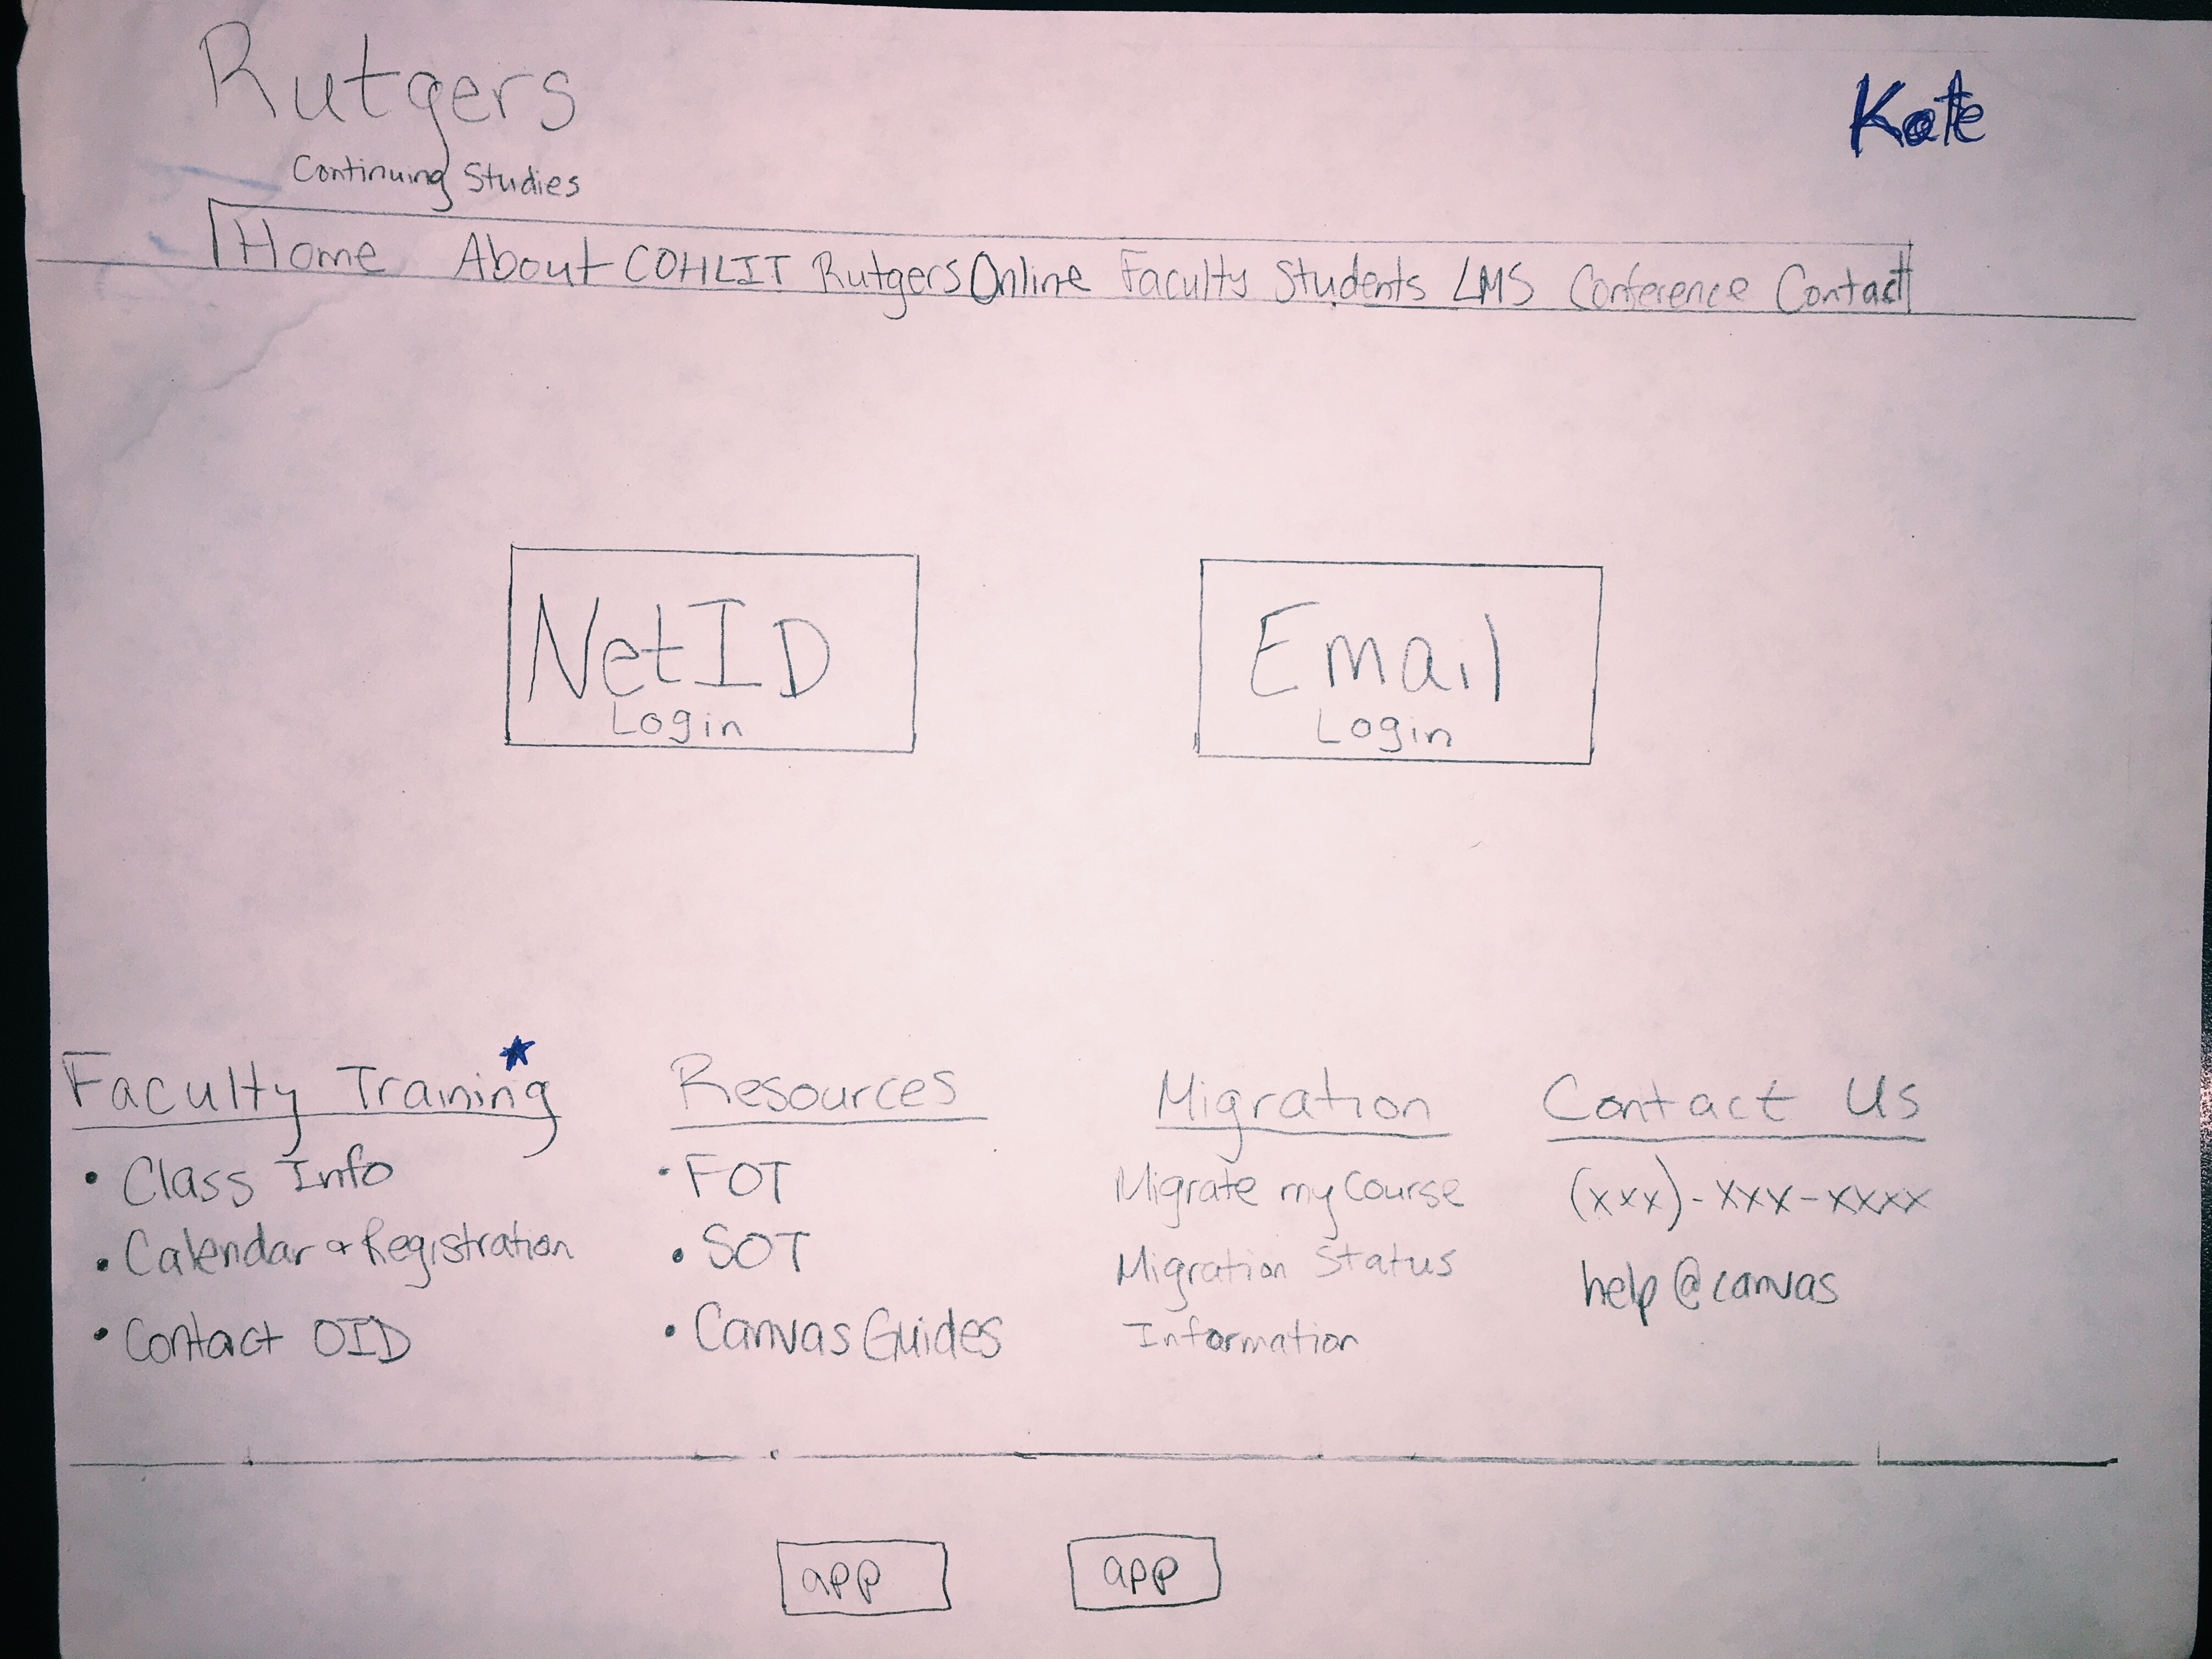 Rutgers
Kate
Continuing Studies
Home About COHLIT Rutgers Online Faculty Students LMS Conference Contact
NetID
Login
Email
Login
Faculty Training
• Class Info
• Calendar & Registration
• Contact OID
Resources
• FOT
• SOT
• Canvas Guides
Migration
Migrate my Course
Migration Status
Information
Contact Us
(xxx)-xxx-xxxx
help@canvas
app
app